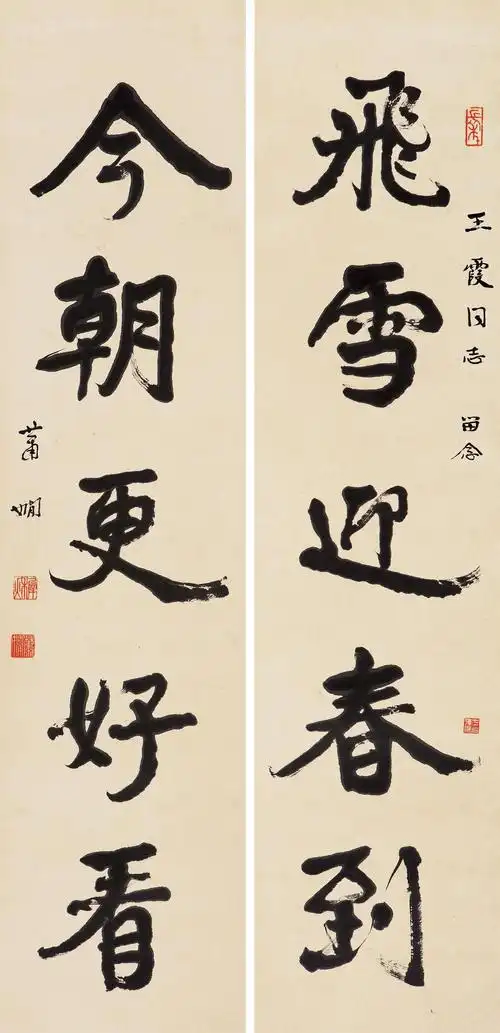 飛雪迎春到
王霞同志 留念
今朝更好看
蕭嫻